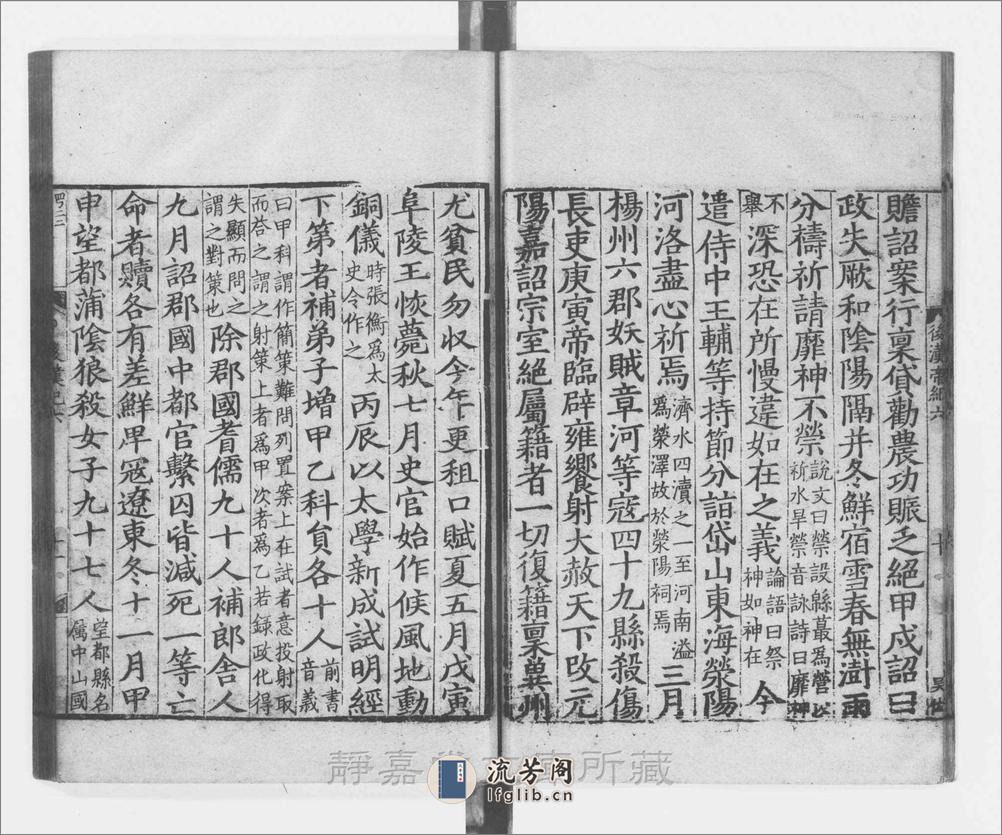 贍詔案行稟貸勸農功賑乏絕甲戌詔曰
政失厥和陰陽隔并冬鮮宿雪春無澍雨
分禱祈請靡神不禜說文曰禜設緜蕞爲營以祈水旱禜音詠詩曰靡神不舉
深恐在所慢違如在之義論語曰祭神如神在今
遣侍中王輔等持節分詣岱山東海滎陽
河洛盡心祈焉濟水四瀆之一至河南溢爲滎澤故於滎陽祠焉三月
楊州六郡妖賊章河等寇四十九縣殺傷
長吏庚寅帝臨辟雍饗射大赦天下改元
陽嘉詔宗室絕屬籍者一切復籍稟兾州
尤貧民勿收今年更租口賦夏五月戊寅
阜陵王恢薨秋七月史官始作候風地動
銅儀時張衡爲太史令作之丙辰以太學新成試明經
下第者補弟子增甲乙科員各十人前書音義
曰甲科謂作簡策難問列置案上在試者意投射取而荅之謂之射策上者爲甲次者爲乙若錄政化得
失顯而問之謂之對策也除郡國耆儒九十人補郎舍人
九月詔郡國中都官繫囚皆減死一等亡
命者贖各有差鮮卑寇遼東冬十一月甲
申望都蒲陰狼殺女子九十七人望都縣名屬中山國
後漢帝紀六
十
靜嘉堂文庫所藏
流芳阁
lfglib.cn